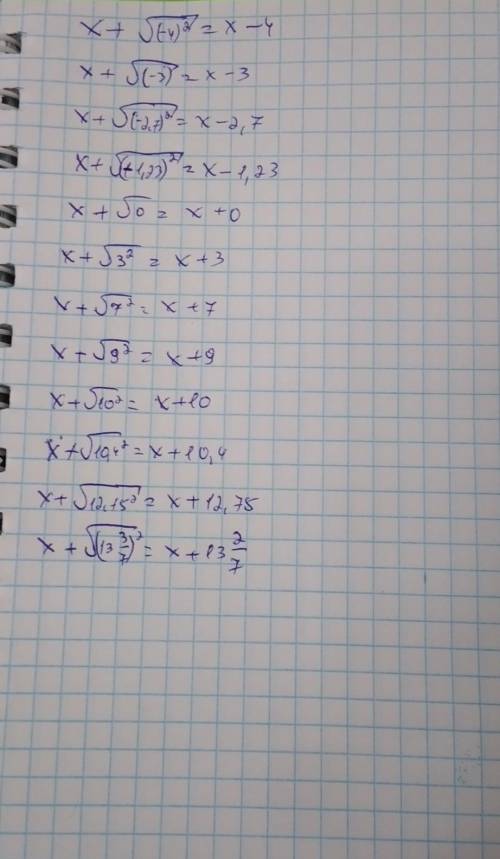 x + √(-4)² = x - 4
x + √(-3)² = x - 3
x + √(-2,7)² = x - 2,7
x + √(-1,23)² = x - 1,23
x + √0 = x + 0
x + √3² = x + 3
x + √7² = x + 7
x + √9² = x + 9
x + √10² = x + 10
x + √10,4² = x + 10,4
x + √12,75² = x + 12,75
x + √(13 3/7)² = x + 13 2/7